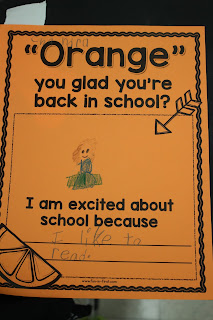 "Orange"
you glad you're
back in school?
I am excited about
school because
I like to
read.